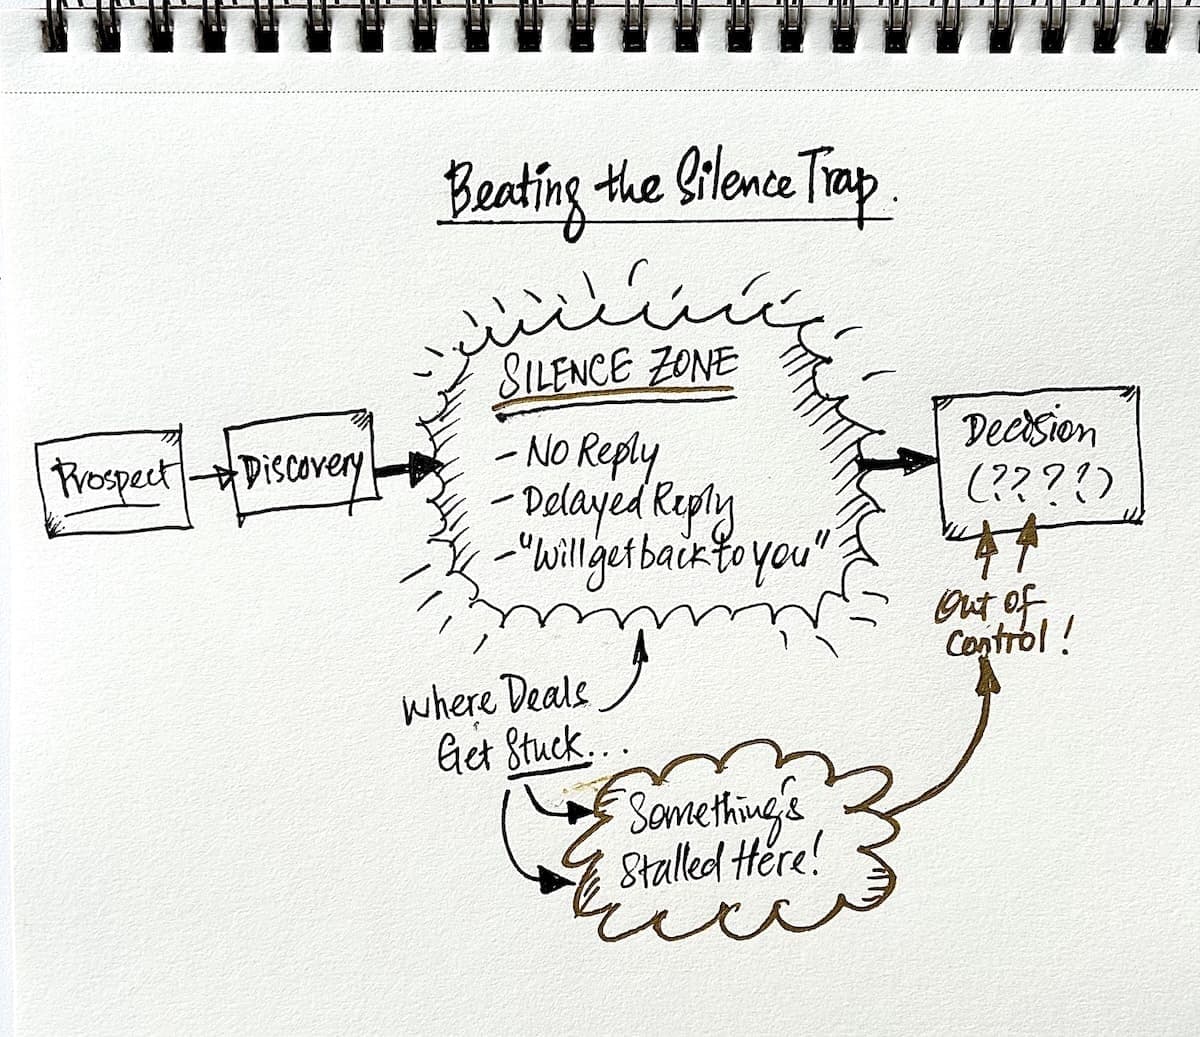 Beating the Silence Trap.
SILENCE ZONE
- No Reply
- Delayed Reply
- "Will get back to you"
Prospect
Discovery
Decision
(????)
Out of
Control!
Where Deals
Get Stuck...
Something's
Stalled Here!